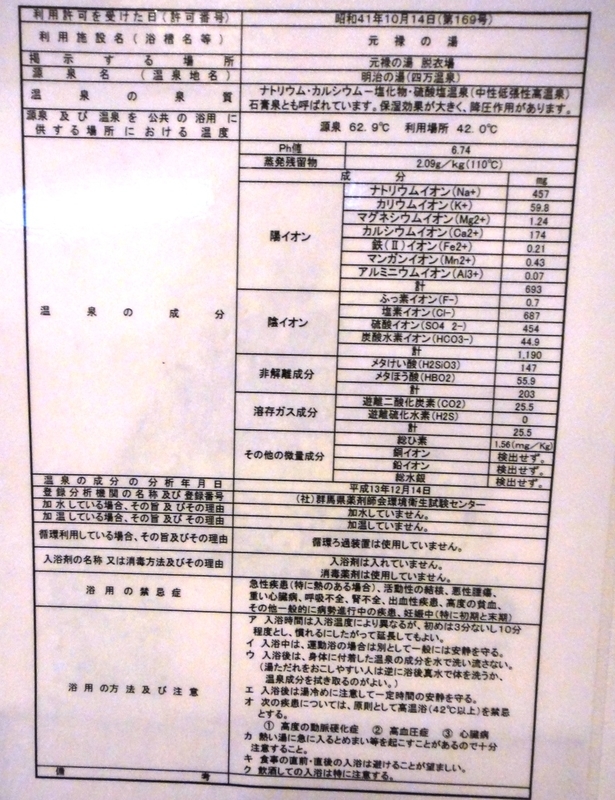 利用許可を受けた日(許可番号) 昭和41年10月14日(第169号)
利用施設名(浴槽名等) 元禄の湯
掲示する場所 元禄の湯 脱衣場
源泉名(温泉地名) 明治の湯(四万温泉)
温泉の泉質 ナトリウム・カルシウム－塩化物・硫酸塩温泉(中性低張性高温泉)
石膏泉とも呼ばれています。保湿効果が大きく、降圧作用があります。
源泉及び温泉を公共の浴用に
供する場所における温度 源泉 62.9℃ 利用場所 42.0℃
温泉の成分
Ph値 6.74
蒸発残留物 2.09g/kg(110℃)
成分 mg
陽イオン
ナトリウムイオン(Na+) 457
カリウムイオン(K+) 59.8
マグネシウムイオン(Mg2+) 1.24
カルシウムイオン(Ca2+) 174
鉄(Ⅱ)イオン(Fe2+) 0.21
マンガンイオン(Mn2+) 0.43
アルミニウムイオン(Al3+) 0.07
計 693
陰イオン
ふっ素イオン(F-) 0.7
塩素イオン(Cl-) 687
硫酸イオン(SO4 2-) 454
炭酸水素イオン(HCO3-) 44.9
計 1,190
非解離成分
メタけい酸(H2SiO3) 147
メタほう酸(HBO2) 55.9
計 203
溶存ガス成分
遊離二酸化炭素(CO2) 25.5
遊離硫化水素(H2S) 0
計 25.5
その他の微量成分
総ひ素 1.56(mg/Kg)
銅イオン 検出せず。
鉛イオン 検出せず。
総水銀 検出せず。
温泉の成分の分析年月日 平成13年12月14日
登録分析機関の名称及び登録番号 (社)群馬県薬剤師会環境衛生試験センター
加水している場合、その旨及びその理由 加水していません。
加温している場合、その旨及びその理由 加温していません。
循環利用している場合、その旨及びその理由 循環ろ過装置は使用していません。
入浴剤の名称又は消毒方法及びその理由 入浴剤は入れていません。
消毒薬剤は使用していません。
浴用の禁忌症 急性疾患(特に熱のある場合)、活動性の結核、悪性腫瘍、
重い心臓病、呼吸不全、腎不全、出血性疾患、高度の貧血、
その他一般的に病勢進行中の疾患、妊娠中(特に初期と末期)
浴用の方法及び注意
ア 入浴時間は入浴温度により異なるが、初めは3分ないし10分
程度とし、慣れるにしたがって延長してもよい。
イ 入浴中は、運動浴の場合は別として一般には安静を守る。
ウ 入浴後は、身体に付着した温泉の成分を水で洗い流さない。
(湯ただれをおこしやすい人は逆に浴後真水で体を洗うか、
温泉成分を拭き取るのがよい。)
エ 入浴後は湯冷めに注意して一定時間の安静を守る。
オ 次の疾患については、原則として高温浴(42℃以上)を禁忌
とする。
① 高度の動脈硬化症 ② 高血圧症 ③ 心臓病
カ 熱い湯に急に入るとめまい等を起こすことがあるので十分
注意すること。
キ 食事の直前・直後の入浴は避けることが望ましい。
ク 飲酒しての入浴は特に注意する。
備考